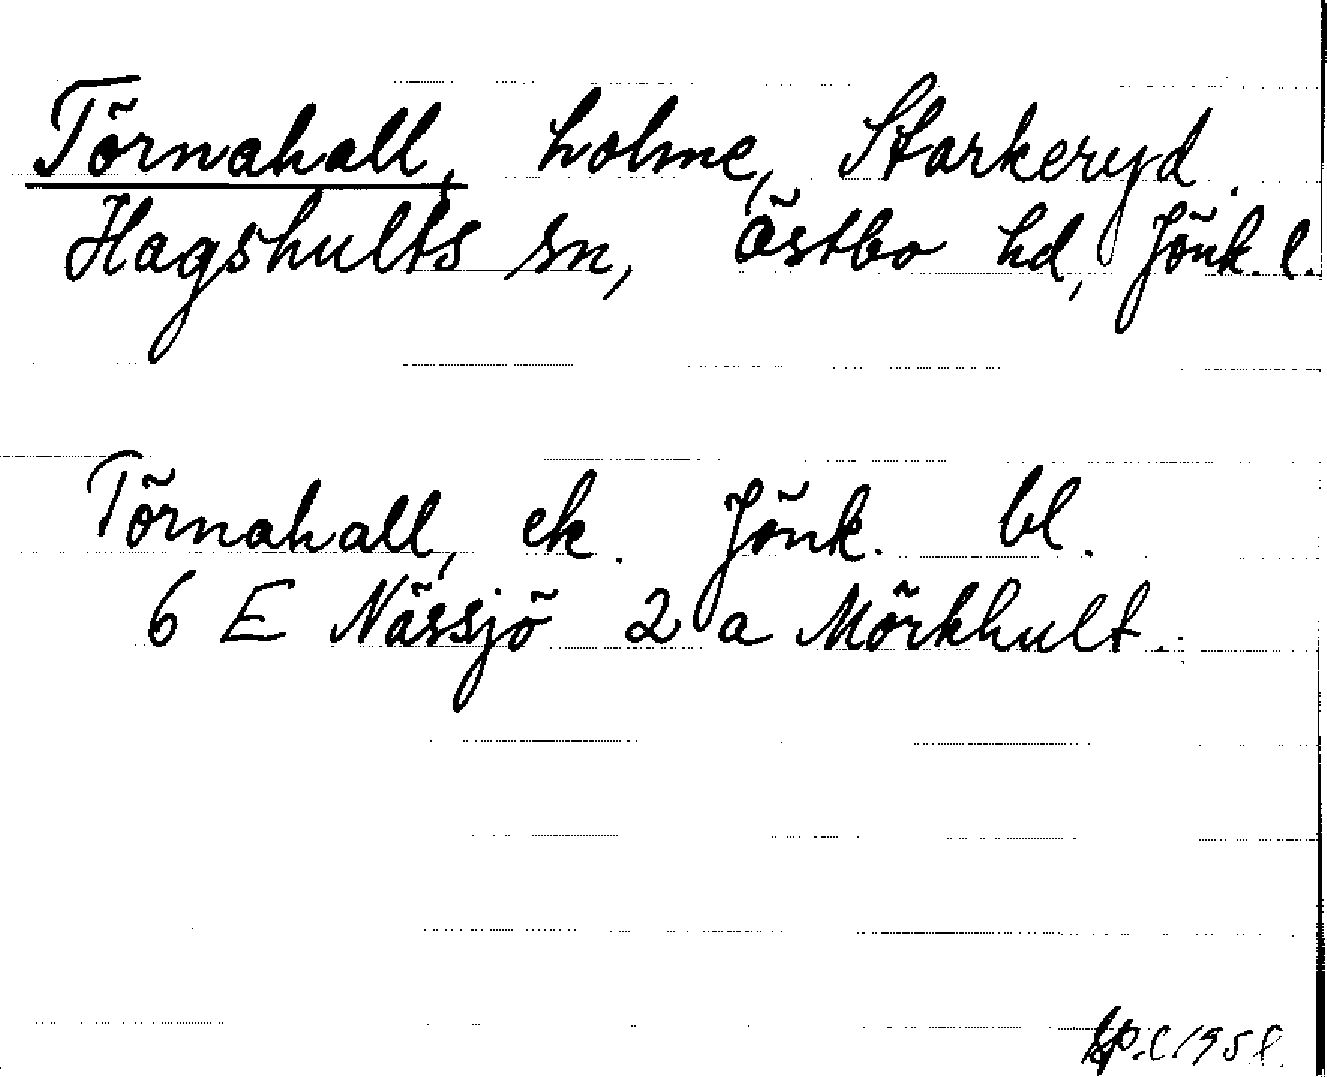 Törnahall, holme, Starkeryd.
Hagshults sn, Östbo hd, Jönk. l.
Törnahall, ek. Jönk. bl.
6 E Nässjö 2 a Mörkhult.
1958